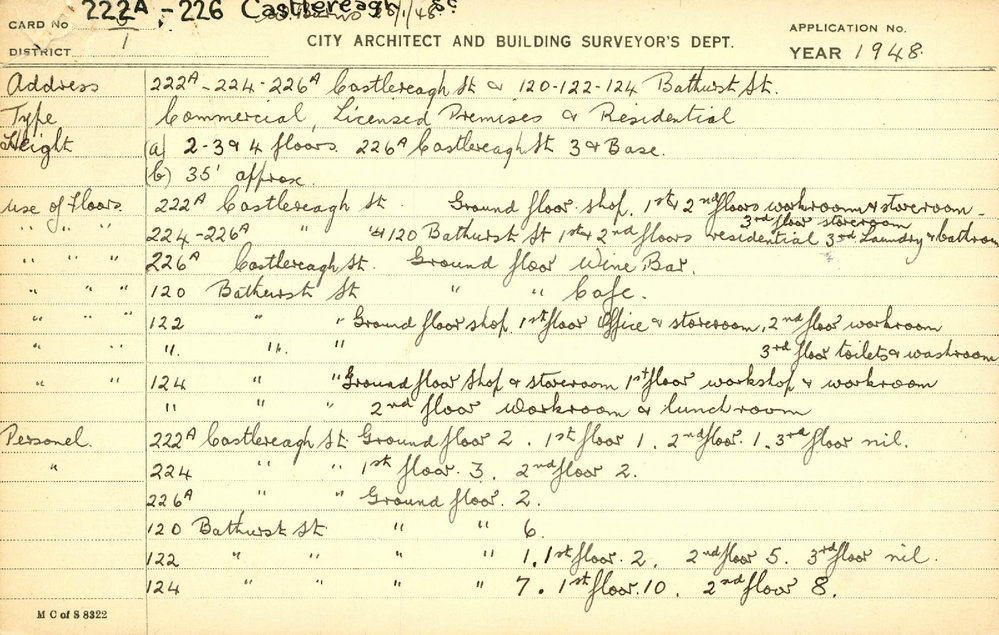 222A - 226 Castlereagh St
CARD No 6/1
APPLICATION No.
DISTRICT
CITY ARCHITECT AND BUILDING SURVEYOR'S DEPT.
YEAR 1948.
Address 222A - 224 - 226A Castlereagh St & 120-122-124 Bathurst St.
Type Commercial, Licensed Premises & Residential
Height (a) 2-3 & 4 floors. 226A Castlereagh St 3 & Base.
(b) 35' approx.
Use of Floors. 222A Castlereagh St. Ground floor shop. 1st & 2nd floors workroom & storeroom -
3rd floor storeroom
" " " 224-226A " " & 120 Bathurst St 1st & 2nd floors residential 3rd Laundry & bathroom
" " " 226A Castlereagh St. Ground floor Wine Bar.
" " " 120 Bathurst St " " Cafe.
" " " 122 " " Ground floor shop. 1st floor Office & storeroom, 2nd floor workroom
" " " " " 3rd floor toilets & washroom
" " 124 " " Ground floor shop & storeroom 1st floor workshop & workroom
" " " 2nd floor workroom & lunchroom
Personel. 222A Castlereagh St. Ground floor 2. 1st floor 1. 2nd floor. 1. 3rd floor nil.
" 224 " " 1st floor. 3. 2nd floor 2.
226A " " Ground floor. 2.
120 Bathurst St " " 6.
122 " " " " 1. 1st floor. 2. 2nd floor 5. 3rd floor nil.
124 " " " " 7. 1st floor. 10. 2nd floor 8.
M C of S 8322